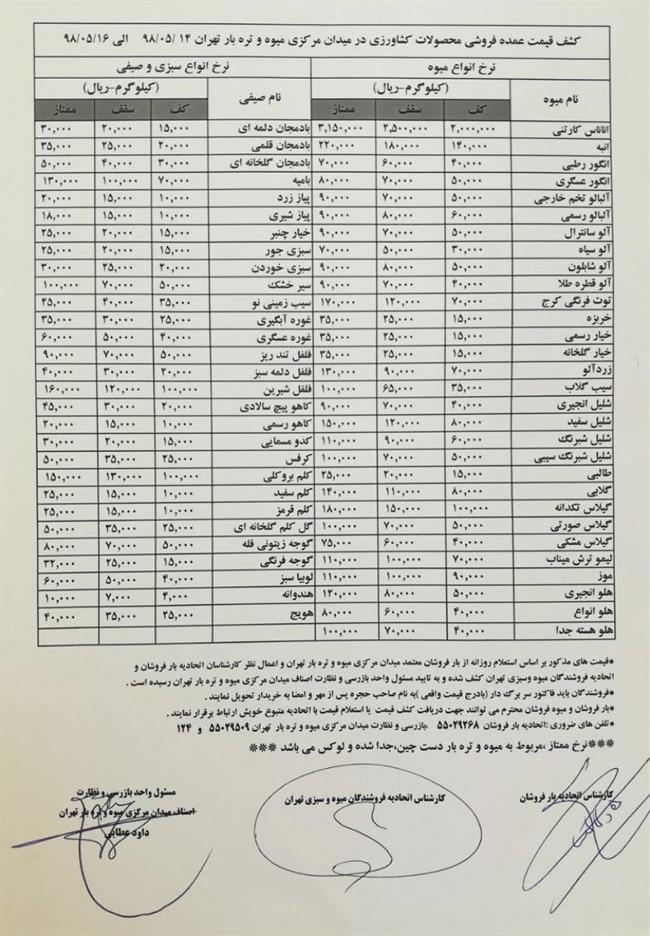 کشف قیمت عمده فروشی محصولات کشاورزی در میدان مرکزی میوه و تره بار تهران ۱۴ /۹۸/۰۵ الی ۹۸/۰۵/۱۶
نرخ انواع میوه نرخ انواع سبزی و صیفی
نام میوه (کیلوگرم-ریال) نام صیفی (کیلوگرم-ریال)
کف سقف ممتاز کف سقف ممتاز
اناناس کارتنی ۲,۰۰۰,۰۰۰ ۲,۵۰۰,۰۰۰ ۳,۱۵۰,۰۰۰ بادمجان دلمه ای ۱۵,۰۰۰ ۲۰,۰۰۰ ۳۰,۰۰۰
انبه ۱۴۰,۰۰۰ ۱۸۰,۰۰۰ ۲۲۰,۰۰۰ بادمجان قلمی ۲۰,۰۰۰ ۲۵,۰۰۰ ۳۵,۰۰۰
انگور رطبی ۴۰,۰۰۰ ۶۰,۰۰۰ ۷۰,۰۰۰ بادمجان گلخانه ای ۳۰,۰۰۰ ۴۰,۰۰۰ ۵۰,۰۰۰
انگور عسگری ۵۰,۰۰۰ ۷۰,۰۰۰ ۸۰,۰۰۰ بامیه ۷۰,۰۰۰ ۱۰۰,۰۰۰ ۱۳۰,۰۰۰
آلبالو تخم خارجی ۵۰,۰۰۰ ۷۰,۰۰۰ ۹۰,۰۰۰ پیاز زرد ۱۰,۰۰۰ ۱۵,۰۰۰ ۲۰,۰۰۰
آلبالو رسمی ۶۰,۰۰۰ ۸۰,۰۰۰ ۹۰,۰۰۰ پیاز شیری ۱۰,۰۰۰ ۱۵,۰۰۰ ۱۸,۰۰۰
آلو سانترال ۵۰,۰۰۰ ۷۰,۰۰۰ ۹۰,۰۰۰ خیار چنبر ۱۵,۰۰۰ ۲۰,۰۰۰ ۲۵,۰۰۰
آلو سیاه ۳۰,۰۰۰ ۵۰,۰۰۰ ۷۰,۰۰۰ سبزی جور ۱۵,۰۰۰ ۲۰,۰۰۰ ۲۵,۰۰۰
آلو شابلون ۵۰,۰۰۰ ۸۰,۰۰۰ ۹۰,۰۰۰ سبزی خوردن ۲۰,۰۰۰ ۲۵,۰۰۰ ۳۰,۰۰۰
آلو قطره طلا ۴۰,۰۰۰ ۷۰,۰۰۰ ۹۰,۰۰۰ سیر خشک ۵۰,۰۰۰ ۷۰,۰۰۰ ۱۰۰,۰۰۰
توت فرنگی کرج ۷۰,۰۰۰ ۱۲۰,۰۰۰ ۱۷۰,۰۰۰ سیب زمینی نو ۳۵,۰۰۰ ۴۰,۰۰۰ ۴۵,۰۰۰
خربزه ۱۵,۰۰۰ ۲۵,۰۰۰ ۳۵,۰۰۰ غوره آبگیری ۲۵,۰۰۰ ۳۰,۰۰۰ ۳۵,۰۰۰
خیار رسمی ۱۵,۰۰۰ ۲۵,۰۰۰ ۳۵,۰۰۰ غوره عسگری ۴۰,۰۰۰ ۵۰,۰۰۰ ۶۰,۰۰۰
خیار گلخانه ۱۵,۰۰۰ ۲۵,۰۰۰ ۳۵,۰۰۰ فلفل تند ریز ۵۰,۰۰۰ ۷۰,۰۰۰ ۹۰,۰۰۰
زردآلو ۷۰,۰۰۰ ۹۰,۰۰۰ ۱۳۰,۰۰۰ فلفل دلمه سبز ۲۰,۰۰۰ ۳۰,۰۰۰ ۴۰,۰۰۰
سیب گلاب ۳۵,۰۰۰ ۶۵,۰۰۰ ۱۰۰,۰۰۰ فلفل شیرین ۱۰۰,۰۰۰ ۱۲۰,۰۰۰ ۱۶۰,۰۰۰
شلیل انجیری ۴۰,۰۰۰ ۷۰,۰۰۰ ۹۰,۰۰۰ کاهو پیچ سالادی ۲۰,۰۰۰ ۳۰,۰۰۰ ۴۵,۰۰۰
شلیل سفید ۸۰,۰۰۰ ۱۲۰,۰۰۰ ۱۵۰,۰۰۰ کاهو رسمی ۱۰,۰۰۰ ۱۵,۰۰۰ ۲۰,۰۰۰
شلیل شبرنگ ۶۰,۰۰۰ ۹۰,۰۰۰ ۱۱۰,۰۰۰ کدو مسمایی ۱۵,۰۰۰ ۲۰,۰۰۰ ۳۰,۰۰۰
شلیل شبرنگ سیبی ۵۰,۰۰۰ ۷۰,۰۰۰ ۱۰۰,۰۰۰ کرفس ۲۵,۰۰۰ ۳۵,۰۰۰ ۵۰,۰۰۰
طالبی ۱۵,۰۰۰ ۲۰,۰۰۰ ۲۵,۰۰۰ کلم بروکلی ۱۰۰,۰۰۰ ۱۳۰,۰۰۰ ۱۵۰,۰۰۰
گلابی ۸۰,۰۰۰ ۱۱۰,۰۰۰ ۱۴۰,۰۰۰ کلم سفید ۱۰,۰۰۰ ۱۵,۰۰۰ ۲۵,۰۰۰
گیلاس تکدانه ۱۰۰,۰۰۰ ۱۵۰,۰۰۰ ۱۸۰,۰۰۰ کلم قرمز ۱۰,۰۰۰ ۱۵,۰۰۰ ۲۵,۰۰۰
گیلاس صورتی ۵۰,۰۰۰ ۷۰,۰۰۰ ۱۰۰,۰۰۰ گل کلم گلخانه ای ۲۵,۰۰۰ ۳۵,۰۰۰ ۵۰,۰۰۰
گیلاس مشکی ۴۰,۰۰۰ ۶۰,۰۰۰ ۷۵,۰۰۰ گوجه زیتونی فله ۵۰,۰۰۰ ۷۰,۰۰۰ ۸۰,۰۰۰
لیمو ترش میناب ۷۰,۰۰۰ ۱۰۰,۰۰۰ ۱۱۰,۰۰۰ گوجه فرنگی ۱۵,۰۰۰ ۲۵,۰۰۰ ۳۲,۰۰۰
موز ۹۰,۰۰۰ ۱۰۰,۰۰۰ ۱۱۰,۰۰۰ لوبیا سبز ۴۰,۰۰۰ ۵۰,۰۰۰ ۶۰,۰۰۰
هلو انجیری ۵۰,۰۰۰ ۸۰,۰۰۰ ۱۲۰,۰۰۰ هندوانه ۴,۰۰۰ ۷,۰۰۰ ۱۰,۰۰۰
هلو انواع ۴۰,۰۰۰ ۶۰,۰۰۰ ۸۰,۰۰۰ هویج ۲۵,۰۰۰ ۳۵,۰۰۰ ۴۰,۰۰۰
هلو هسته جدا ۴۰,۰۰۰ ۷۰,۰۰۰ ۱۰۰,۰۰۰
*قیمت های مذکور بر اساس استعلام روزانه از بار فروشان معتمد میدان مرکزی میوه و تره بار تهران و اعمال نظر کارشناسان اتحادیه بار فروشان و
اتحادیه فروشندگان میوه وسبزی تهران کشف شده و به تایید مسئول واحد بازرسی و نظارت اصناف میدان مرکزی میوه و تره بار تهران رسیده است .
*فروشندگان باید فاکتور سر برگ دار (بادرج قیمت واقعی )به نام صاحب حجره پس از مهر و امضا به خریدار تحویل نمایند .
*بار فروشان و میوه فروشان محترم می توانند جهت دریافت کشف قیمت یا استعلام قیمت با اتحادیه متبوع خویش ارتباط برقرار نمایند .
*تلفن های ضروری :اتحادیه بار فروشان ۵۵۰۲۹۲۶۸ ،بازرسی و نظارت میدان مرکزی میوه و تره بار تهران ۵۵۰۲۹۵۰۹ و ۱۲۴
***نرخ ممتاز ،مربوط به میوه و تره بار دست چین،جدا شده و لوکس می باشد ***
کارشناس اتحادیه بار فروشان کارشناس اتحادیه فروشندگان میوه و سبزی تهران مسئول واحد بازرسی و نظارت
اصناف میدان مرکزی میوه و تره بار تهران
داود عطایی